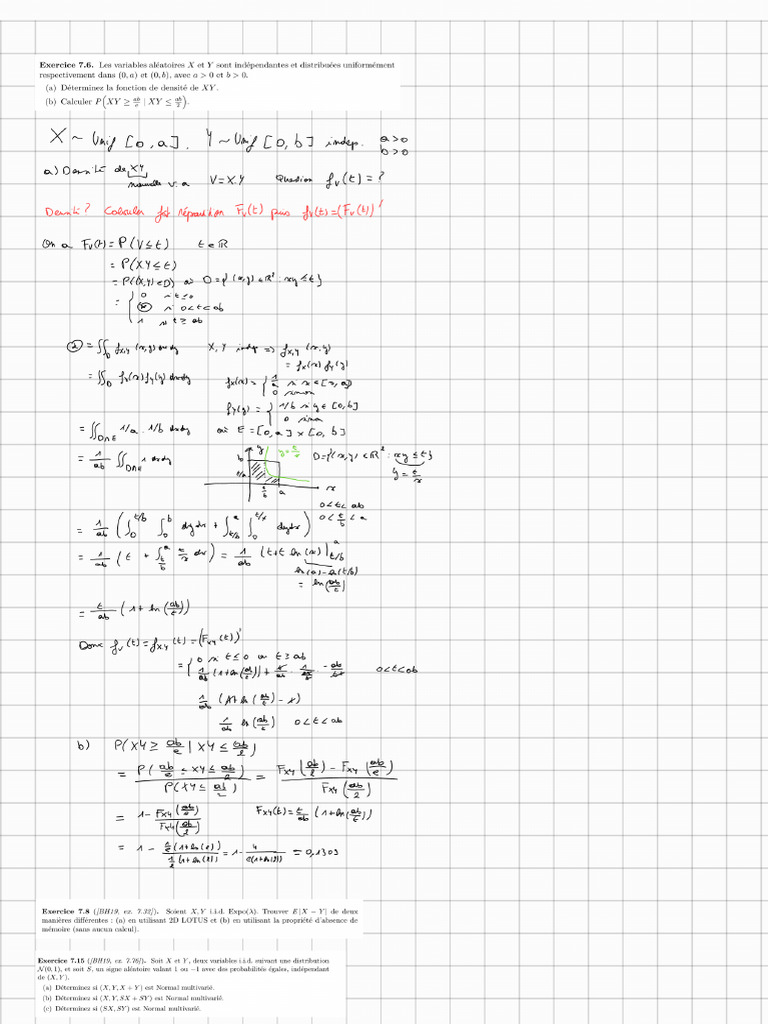 Exercice 7.6. Les variables aléatoires X et Y sont indépendantes et distribuées uniformément
respectivement dans (0, a) et (0, b), avec a > 0 et b > 0.
(a) Déterminez la fonction de densité de XY.
(b) Calculer P(XY ≥ ab/e | XY ≤ ab/2).
X ~ Unif [0, a]. Y ~ Unif [0, b] indep. a>0
b>0
a) Densité de XY
nouvelle v.a V = X.Y Question f_V(t) = ?
Densité? Calculer fct répartition F_V(t) puis f_V(t) = (F_V(t))'
On a F_V(t) = P(V ≤ t) t ∈ ℝ
= P(XY ≤ t)
= P((X,Y) ∈ D) où D = {(x,y) ∈ ℝ² : xy ≤ t}
= { 0 si t ≤ 0
(*) si 0 < t < ab
1 si t ≥ ab
= ∬_D f_X,Y (x,y) dxdy X, Y indep => f_X,Y (x,y)
= f_X(x) f_Y(y)
= ∬_D f_X(x) f_Y(y) dxdy f_X(x) = { 1/a si x ∈ [0, a]
0 sinon
f_Y(y) = { 1/b si y ∈ [0, b]
0 sinon
= ∬_D∩E 1/a . 1/b dxdy où E = [0, a] × [0, b]
= 1/ab ∬_D∩E 1 dxdy
b y y = t/x D = {(x,y) ∈ ℝ² : xy ≤ t}
t/a y = t/x
t/b a x
0 < t < ab
0 < t/b < a
= 1/ab ( ∫_0^t/b ∫_0^b dydx + ∫_t/b^a ∫_0^t/x dydx )
= 1/ab ( t + ∫_t/b^a t/x dx ) = 1/ab (t + t ln(x) |_t/b^a
ln(a) - ln(t/b)
= ln(ab/t)
= t/ab (1 + ln(ab/t))
Donc f_V(t) = f_XY(t) = (F_XY(t))'
= { 0 si t ≤ 0 ou t ≥ ab
1/ab (1 + ln(ab/t)) + t/ab . 1/ab/t . -ab/t² 0 < t < ab
1/ab (1 + ln(ab/t) - 1)
1/ab ln(ab/t) 0 < t < ab
b) P(XY ≥ ab/e | XY ≤ ab/2)
= P(ab/e ≤ XY ≤ ab/2) / P(XY ≤ ab/2) = F_XY(ab/2) - F_XY(ab/e) / F_XY(ab/2)
= 1 - F_XY(ab/e) / F_XY(ab/2) F_XY(t) = t/ab (1 + ln(ab/t))
= 1 - 1/e (1+ln(e)) / 1/2 (1+ln(2)) = 1 - 4 / e(1+ln(2)) = 0,1309
Exercice 7.8 ([BH19, ex. 7.32]). Soient X, Y i.i.d. Expo(λ). Trouver E|X − Y| de deux
manières différentes : (a) en utilisant 2D LOTUS et (b) en utilisant la propriété d'absence de
mémoire (sans aucun calcul).
Exercice 7.15 ([BH19, ex. 7.76]). Soit X et Y, deux variables i.i.d. suivant une distribution
N(0, 1), et soit S, un signe aléatoire valant 1 ou −1 avec des probabilités égales, indépendant
de (X, Y).
(a) Déterminez si (X, Y, X + Y) est Normal multivarié.
(b) Déterminez si (X, Y, SX + SY) est Normal multivarié.
(c) Déterminez si (SX, SY) est Normal multivarié.